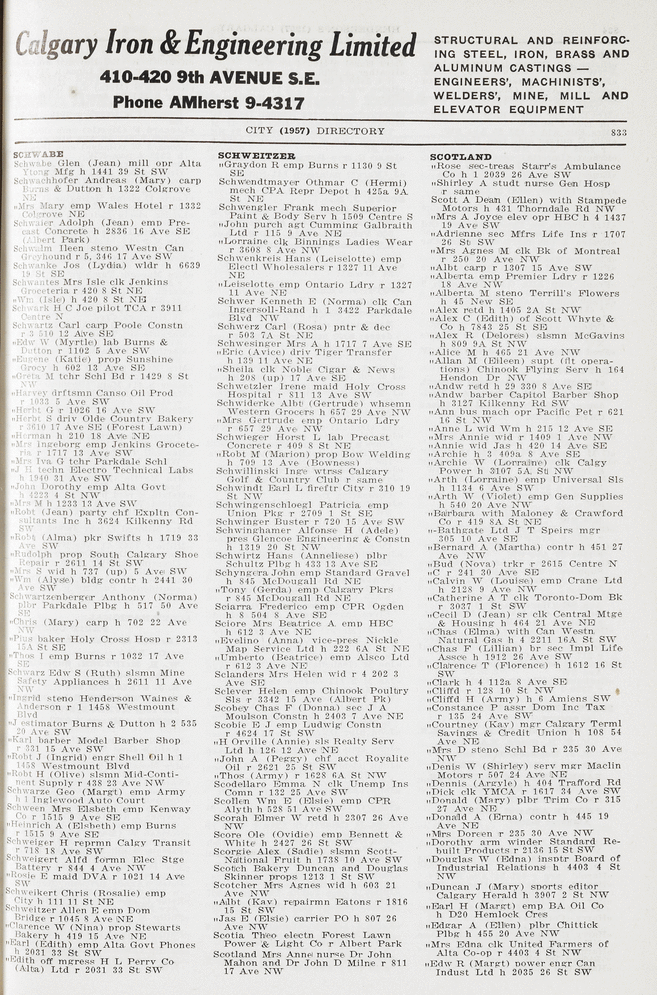 Calgary Iron & Engineering Limited
410-420 9th AVENUE S.E.
Phone AMherst 9-4317
STRUCTURAL AND REINFORC-
ING STEEL, IRON, BRASS AND
ALUMINUM CASTINGS —
ENGINEERS', MACHINISTS',
WELDERS', MINE, MILL AND
ELEVATOR EQUIPMENT
CITY (1957) DIRECTORY 833
SCHWABE
Schwabe Glen (Jean) mill opr Alta
Ytong Mfg h 1441 39 St SW
Schwachhofer Andreas (Mary) carp
Burns & Dutton h 1322 Colgrove
NE
"Mrs Mary emp Wales Hotel r 1332
Colgrove NE
Schwaier Adolph (Jean) emp Pre-
cast Concrete h 2836 16 Ave SE
(Albert Park)
Schwalm Ileen steno Westn Can
Greyhound r 5, 346 17 Ave SW
Schwanke Jos (Lydia) wldr h 6639
19 St SE
Schwantes Mrs Isle clk Jenkins
Groceteria r 420 8 St NE
"Wm (Isle) h 420 8 St NE
Schwark H C Joe pilot TCA r 3911
Centre N
Schwartz Carl carp Poole Constn
r 3 510 12 Ave SW
"Edw W (Myrtle) lab Burns &
Dutton r 1102 5 Ave SW
"Eugene (Katie) prop Sunshine
Grocy h 602 13 Ave SE
"Greta M tchr Schl Bd r 1429 8 St
NW
"Harvey drftsmn Canso Oil Prod
r 1033 5 Ave SW
"Herbt G r 1026 16 Ave SW
"Herbt S driv Olde Country Bakery
r 3610 17 Ave SE (Forest Lawn)
"Herman h 210 18 Ave NE
"Mrs Ingeborg emp Jenkins Grocete-
ria r 1717 13 Ave SW
"Mrs Iva G tchr Parkdale Schl
"J H techn Electro Technical Labs
h 1940 31 Ave SW
"John Dorothy emp Alta Govt
h 4223 4 St NW
"Mrs M h 1233 13 Ave SW
"Robt (Jean) party chf Expltn Con-
sultants Inc h 3624 Kilkenny Rd
SW
"Robt (Alma) pkr Swifts h 1719 33
Ave SW
"Rudolph prop South Calgary Shoe
Repair r 2611 14 St SW
"Mrs S wid h 737 (up) 5 Ave SW
"Wm (Alyse) bldg contr h 2441 30
Ave SW
Schwartzenberger Anthony (Norma)
plbr Parkdale Plbg h 517 50 Ave
SE
"Chris (Mary) carp h 702 22 Ave
NW
"Pius baker Holy Cross Hosp r 2313
15A St SE
"Thos I emp Burns r 1032 17 Ave
SE
Schwarz Edw S (Ruth) slsmn Mine
Safety Appliances h 2611 11 Ave
NW
"Ingrid steno Henderson Waines &
Anderson r 1 1458 Westmount
Blvd
"J estimator Burns & Dutton h 2 535
20 Ave SW
"Karl barber Model Barber Shop
r 331 15 Ave SW
"Robt J (Ingrid) engr Shell Oil h 1
1458 Westmount Blvd
"Robt H (Olive) slsmn Mid-Conti-
nent Supply r 438 23 Ave NW
Schwarze Geo (Margt) emp Army
h 1 Inglewood Auto Court
Schween Mrs Elsbeth emp Kenway
Co r 1515 9 Ave SE
"Heinrich A (Elsbeth) emp Burns
r 1515 9 Ave SE
Schweiger H reprmn Calgy Transit
r 718 18 Ave SW
Schweigert Alfd formn Elec Stge
Battery r 844 4 Ave NW
"Rosie E maid DVA r 1021 14 Ave
SW
Schweikert Chris (Rosalie) emp
City h 111 11 St NE
Schweitzer Allen E emp Dom
Bridge r 1045 8 Ave NE
"Clarence W (Nina) prop Stewarts
Bakery h 419 15 Ave NE
"Earl (Edith) emp Alta Govt Phones
h 2031 33 St SW
"Edith off mgress H L Perry Co
(Alta) Ltd r 2031 33 St SW
SCHWEITZER
"Graydon R emp Burns r 1130 9 St
SE
Schwendtmayer Othmar C (Hermi)
mech CPA Repr Depot h 425a 9A
St NE
Schwengler Frank mech Superior
Paint & Body Serv h 1509 Centre S
"John purch agt Cumming Galbraith
Ltd r 115 9 Ave NE
"Lorraine clk Binnings Ladies Wear
r 3608 8 Ave NW
Schwenkreis Hans (Leiselotte) emp
Electl Wholesalers r 1327 11 Ave
NE
"Leiselotte emp Ontario Ldry r 1327
11 Ave NE
Schwer Kenneth E (Norma) clk Can
Ingersoll-Rand h 1 3422 Parkdale
Blvd NW
Schwerz Carl (Rosa) pntr & dec
r 503 7A St NE
Schwesinger Mrs A h 1717 7 Ave SE
"Eric (Avice) driv Tiger Transfer
h 139 11 Ave NE
"Sheila clk Noble Cigar & News
h 208 (up) 17 Ave SE
Schwetzler Irene maid Holy Cross
Hospital r 811 13 Ave SW
Schwiderke Albt (Gertrude) whsemn
Western Grocers h 657 29 Ave NW
"Mrs Gertrude emp Ontario Ldry
r 657 29 Ave NW
Schwieger Horst L lab Precast
Concrete r 409 8 St NE
"Robt M (Marion) prop Bow Welding
h 709 13 Ave (Bowness)
Schwillinski Inge wtrss Calgary
Golf & Country Club r same
Schwindt Earl L fireftr City r 310 19
St NW
Schwingenschloegl Patricia emp
Union Pkg r 2709 1 St SE
Schwinger Buster r 720 15 Ave SW
Schwinghamer Alfonse H (Adele)
pres Glencoe Engineering & Constn
h 1319 20 St NW
Schwirtz Hans (Anneliese) plbr
Schultz Plbg h 433 13 Ave SE
Schyngera John emp Standard Gravel
h 845 McDougall Rd NE
"Tony (Gerda) emp Calgary Pkrs
r 845 McDougall Rd NE
Sciarra Frederico emp CPR Ogden
h 8 504 8 Ave SE
Sciore Mrs Beatrice A emp HBC
h 612 3 Ave NE
"Evelino (Anna) vice-pres Nickle
Map Service Ltd h 222 6A St NE
"Umberto (Beatrice) emp Alsco Ltd
r 612 3 Ave NE
Sclanders Mrs Helen wid r 4 202 3
Ave SE
Sclever Helen emp Chinook Poultry
Sls r 3342 15 Ave (Albert Pk)
Scobey Chas F (Donna) sec J A
Moulson Constn h 2403 7 Ave NE
Scobie E J emp Ludwig Constn
r 4624 17 St SW
"H Orville (Annie) sls Realty Serv
Ltd h 126 12 Ave NE
"John A (Peggy) chf acct Royalite
Oil r 2621 25 St SW
"Thos (Army) r 1628 6A St NW
Scodellaro Emma N clk Unemp Ins
Comn r 132 25 Ave SW
Scollen Wm E (Elsie) emp CPR
Alyth h 528 51 Ave SW
Scorah Elmer W retd h 2307 26 Ave
NW
Score Ole (Ovidie) emp Bennett &
White h 2427 26 St SW
Scorgie Alex (Sadie) slsmn Scott-
National Fruit h 1738 10 Ave SW
Scotch Bakery Duncan and Douglas
Skinner props 1213 1 St SW
Scotcher Mrs Agnes wid h 603 21
Ave NW
"Albt (Kay) repairmn Eatons r 1816
15 St SW
"Jas E (Elsie) carrier PO h 807 26
Ave NW
Scotia Theo electn Forest Lawn
Power & Light Co r Albert Park
Scotland Mrs Anne nurse Dr John
Mahon and Dr John D Milne r 811
17 Ave NW
SCOTLAND
"Rose sec-treas Starr's Ambulance
Co h 1 2039 26 Ave SW
"Shirley A studt nurse Gen Hosp
r same
Scott A Dean (Ellen) with Stampede
Motors h 431 Thorndale Rd NW
"Mrs A Joyce elev opr HBC h 4 1437
19 Ave SW
"Adrienne sec Mfrs Life Ins r 1707
26 St SW
"Mrs Agnes M clk Bk of Montreal
r 250 20 Ave NW
"Albt carp r 1307 15 Ave SW
"Alberta emp Premier Ldry r 1226
18 Ave NW
"Alberta M steno Terrill's Flowers
h 45 New SE
"Alex retd h 1405 2A St NW
"Alex C (Edith) of Scott Whyte &
Co h 7843 25 St SE
"Alex R (Delores) slsmn McGavins
h 809 9A St NW
"Alice M h 465 21 Ave NW
"Allan M (Eileen) supt (flt opera-
tions) Chinook Flying Serv h 164
Hendon Dr NW
"Andw retd h 29 330 8 Ave SE
"Andw barber Capitol Barber Shop
h 3127 Kilkenny Rd SW
"Ann bus mach opr Pacific Pet r 621
16 St NW
"Anne L wid Wm h 215 12 Ave SE
"Mrs Annie wid r 1409 1 Ave NW
"Annie wid Jas h 420 14 Ave SE
"Archie h 3 409a 8 Ave SE
"Archie W (Lorraine) clk Calgy
Power h 3107 5A St NW
"Arth (Lorraine) emp Universal Sls
h 1134 6 Ave SW
"Arth W (Violet) emp Gen Supplies
h 540 20 Ave NW
"Barbara with Maloney & Crawford
Co r 419 8A St NE
"-Bathgate Ltd J T Speirs mgr
305 10 Ave SE
"Bernard A (Martha) contr h 451 27
Ave NW
"Bud (Nova) trkr r 2615 Centre N
"C r 241 30 Ave SE
"Calvin W (Louise) emp Crane Ltd
h 2128 9 Ave NW
"Catherine A T clk Toronto-Dom Bk
r 3037 1 St SW
"Cecil D (Jean) sr clk Central Mtge
& Housing h 464 21 Ave NE
"Chas (Elma) with Can Westn
Natural Gas h 4 2211 16A St SW
"Chas F (Lillian) br sec Impl Life
Assce h 1912 26 Ave SW
"Clarence T (Florence) h 1612 16 St
SW
"Clark h 4 112a 8 Ave SE
"Cliffd r 128 10 St NW
"Cliffd H (Army) h 6 Amiens SW
"Constance P assr Dom Inc Tax
r 135 24 Ave SW
"Courtney (Kay) mgr Calgary Terml
Savings & Credit Union h 108 54
Ave NE
"Mrs D steno Schl Bd r 235 30 Ave
NW
"Denis W (Shirley) serv mgr Maclin
Motors r 507 24 Ave NE
"Dennis (Argyle) h 404 Trafford Rd
"Dick clk YMCA r 1617 34 Ave SW
"Donald (Mary) plbr Trim Co r 315
27 Ave NE
"Donald A (Erna) contr h 445 19
Ave NE
"Mrs Doreen r 235 30 Ave NW
"Dorothy arm winder Standard Re-
built Products r 2136 15 St SW
"Douglas W (Edna) insptr Board of
Industrial Relations h 4403 4 St
NW
"Duncan J (Mary) sports editor
Calgary Herald h 3907 2 St NW
"Earl H (Margt) emp BA Oil Co
h D20 Hemlock Cres
"Edgar A (Ellen) plbr Chittick
Plbg h 455 20 Ave NW
"Mrs Edna clk United Farmers of
Alta Co-op r 4403 4 St NW
"Edw R (Margt) power engr Can
Indust Ltd h 2035 26 St SW